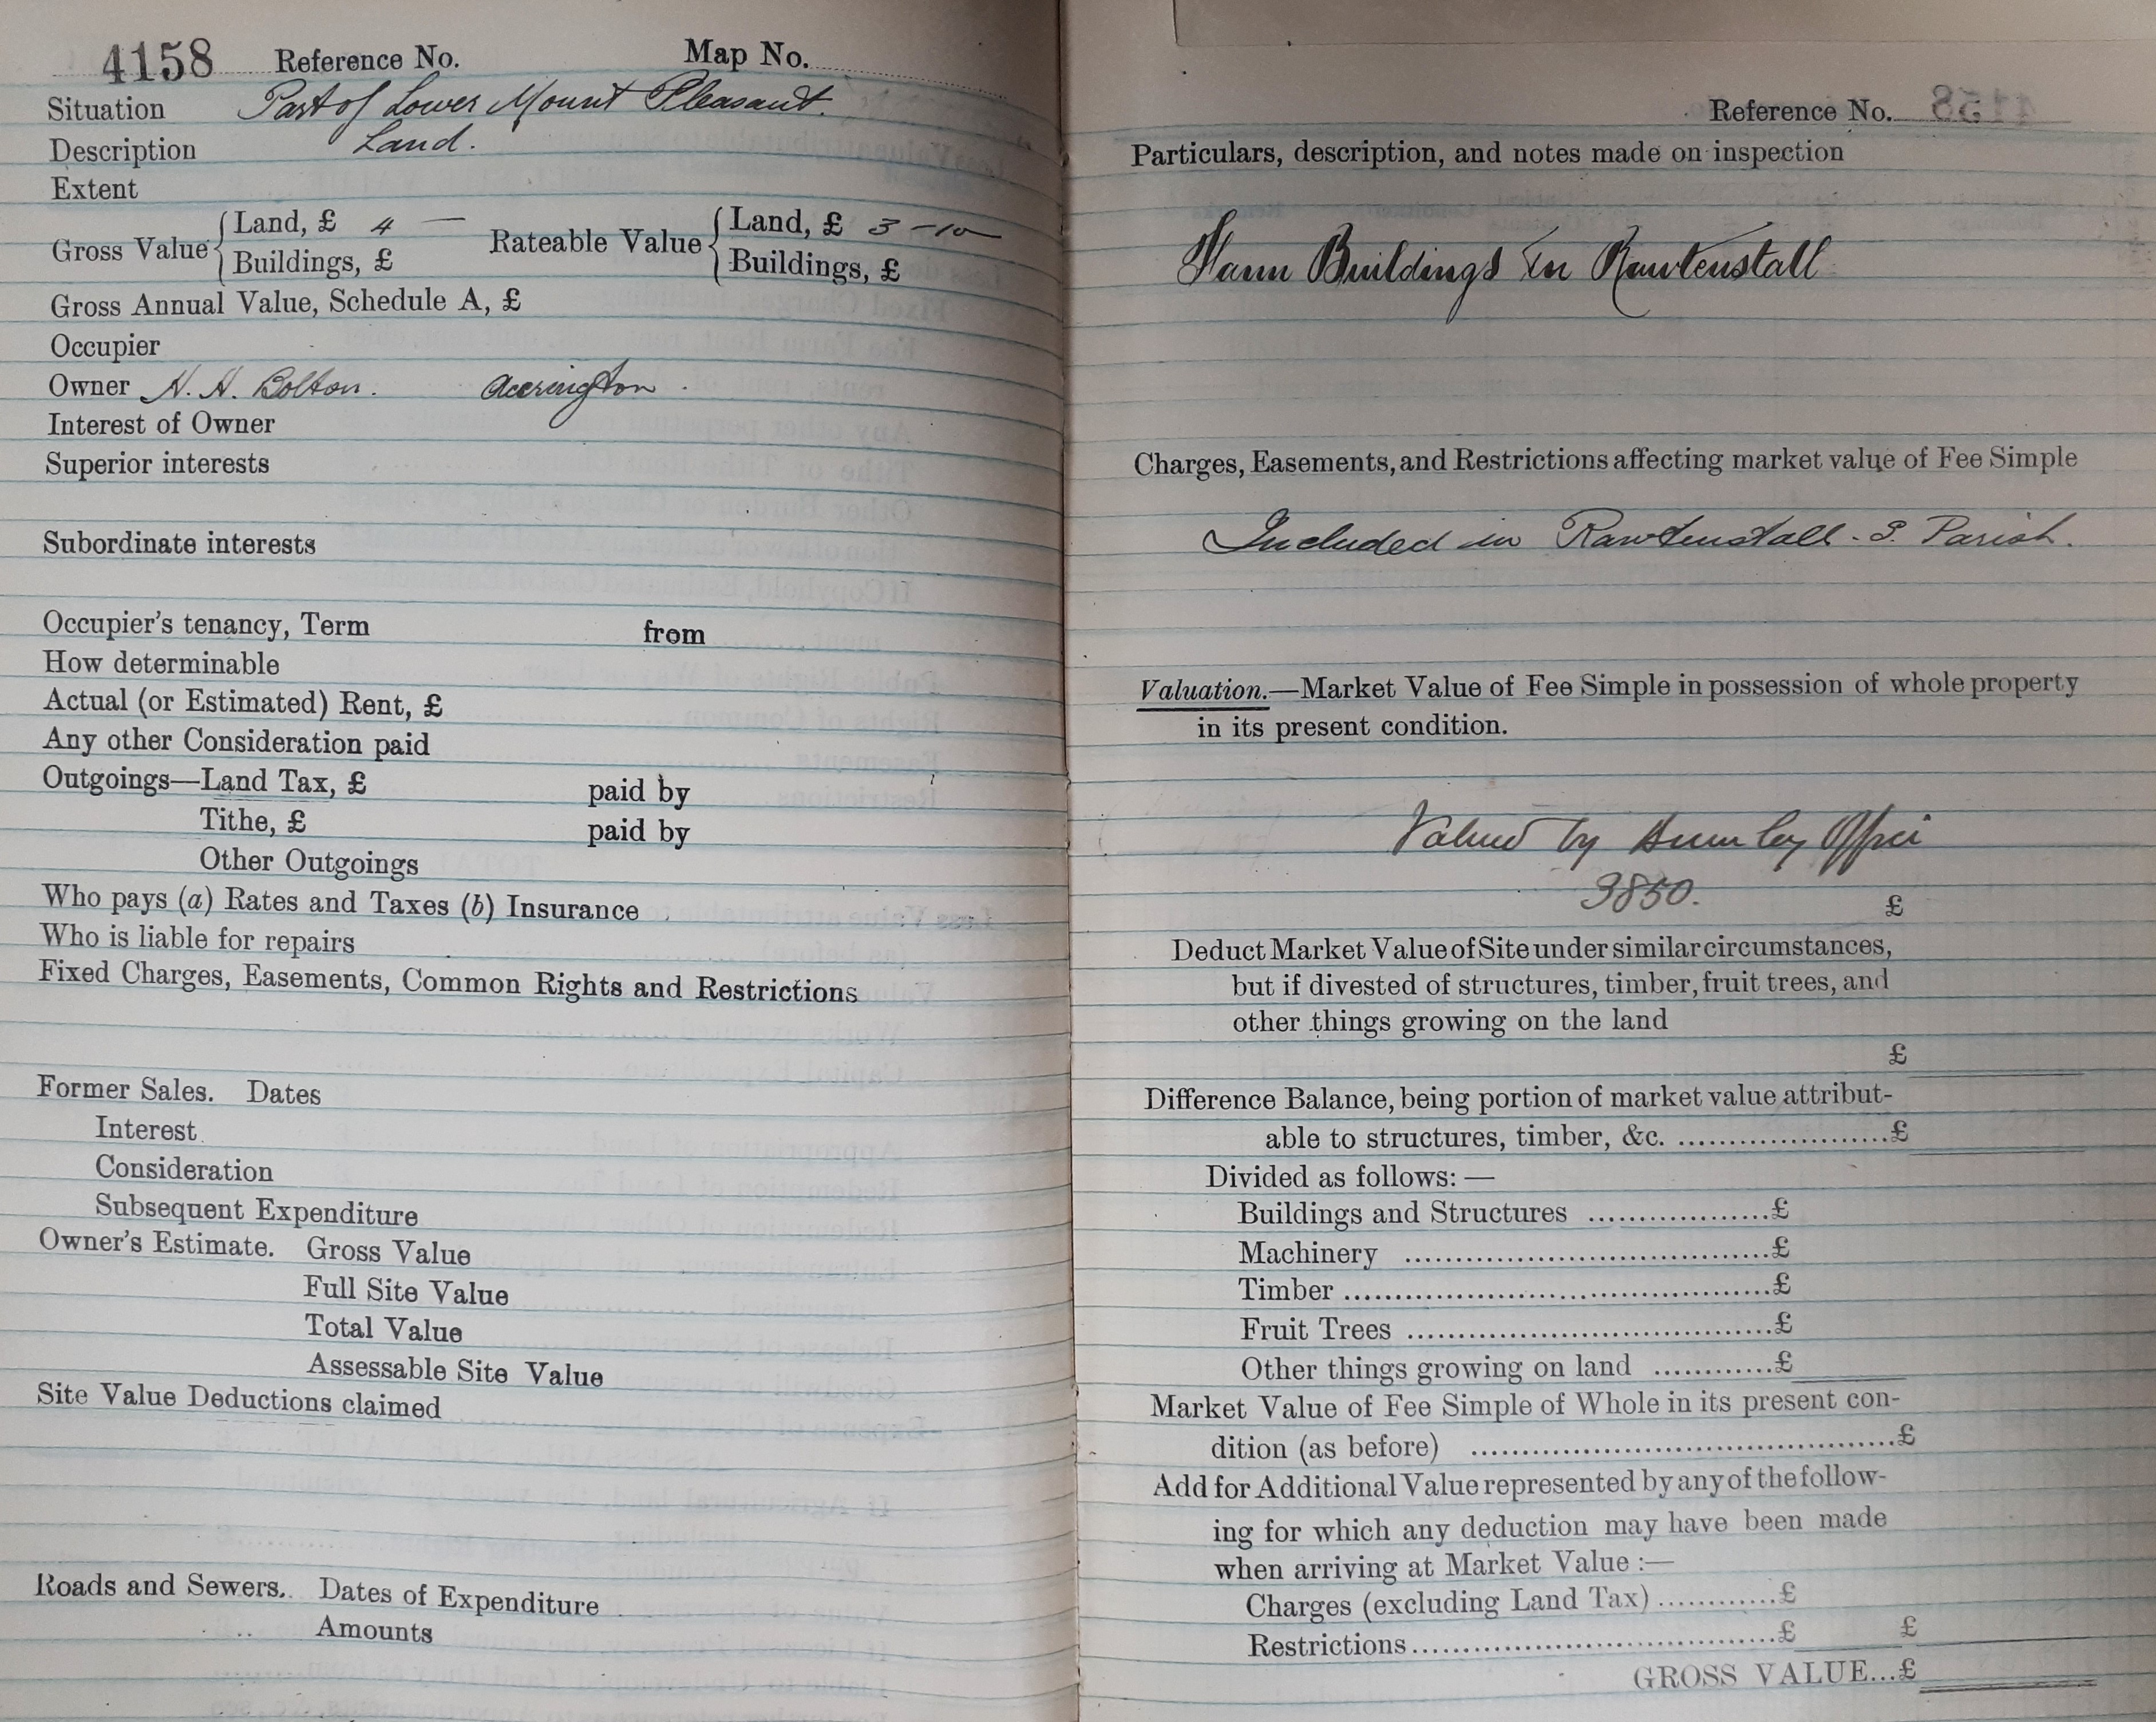 4158 Reference No. Map No.
Situation Part of Lower Mount Pleasant.
Description Land.
Extent
Gross Value { Land, £ 4 — Rateable Value { Land, £ 3 - 10 —
Buildings, £ Buildings, £
Gross Annual Value, Schedule A, £
Occupier
Owner H. H. Bolton. Accrington.
Interest of Owner
Superior interests
Subordinate interests
Occupier's tenancy, Term from
How determinable
Actual (or Estimated) Rent, £
Any other Consideration paid
Outgoings—Land Tax, £ paid by
Tithe, £ paid by
Other Outgoings
Who pays (a) Rates and Taxes (b) Insurance
Who is liable for repairs
Fixed Charges, Easements, Common Rights and Restrictions
Former Sales. Dates
Interest
Consideration
Subsequent Expenditure
Owner's Estimate. Gross Value
Full Site Value
Total Value
Assessable Site Value
Site Value Deductions claimed
Roads and Sewers. Dates of Expenditure
Amounts
Reference No.
Particulars, description, and notes made on inspection
Farm Buildings in Rawtenstall
Charges, Easements, and Restrictions affecting market value of Fee Simple
Included in Rawtenstall. S. Parish.
Valuation.—Market Value of Fee Simple in possession of whole property
in its present condition.
Valued by Burnley Office
3850.
£
Deduct Market Value of Site under similar circumstances,
but if divested of structures, timber, fruit trees, and
other things growing on the land
£
Difference Balance, being portion of market value attribut-
able to structures, timber, &c. ....................£
Divided as follows: —
Buildings and Structures .................£
Machinery ...................................£
Timber .........................................£
Fruit Trees ...................................£
Other things growing on land ............£
Market Value of Fee Simple of Whole in its present con-
dition (as before) .........................................£
Add for Additional Value represented by any of the follow-
ing for which any deduction may have been made
when arriving at Market Value :—
Charges (excluding Land Tax) ............£
Restrictions ...................................£ £
GROSS VALUE...£